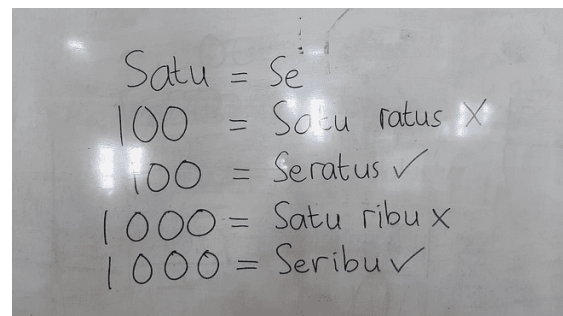 Satu = Se
100 = Satu ratus X
100 = Seratus ✓
1000 = Satu ribu x
1000 = Seribu ✓